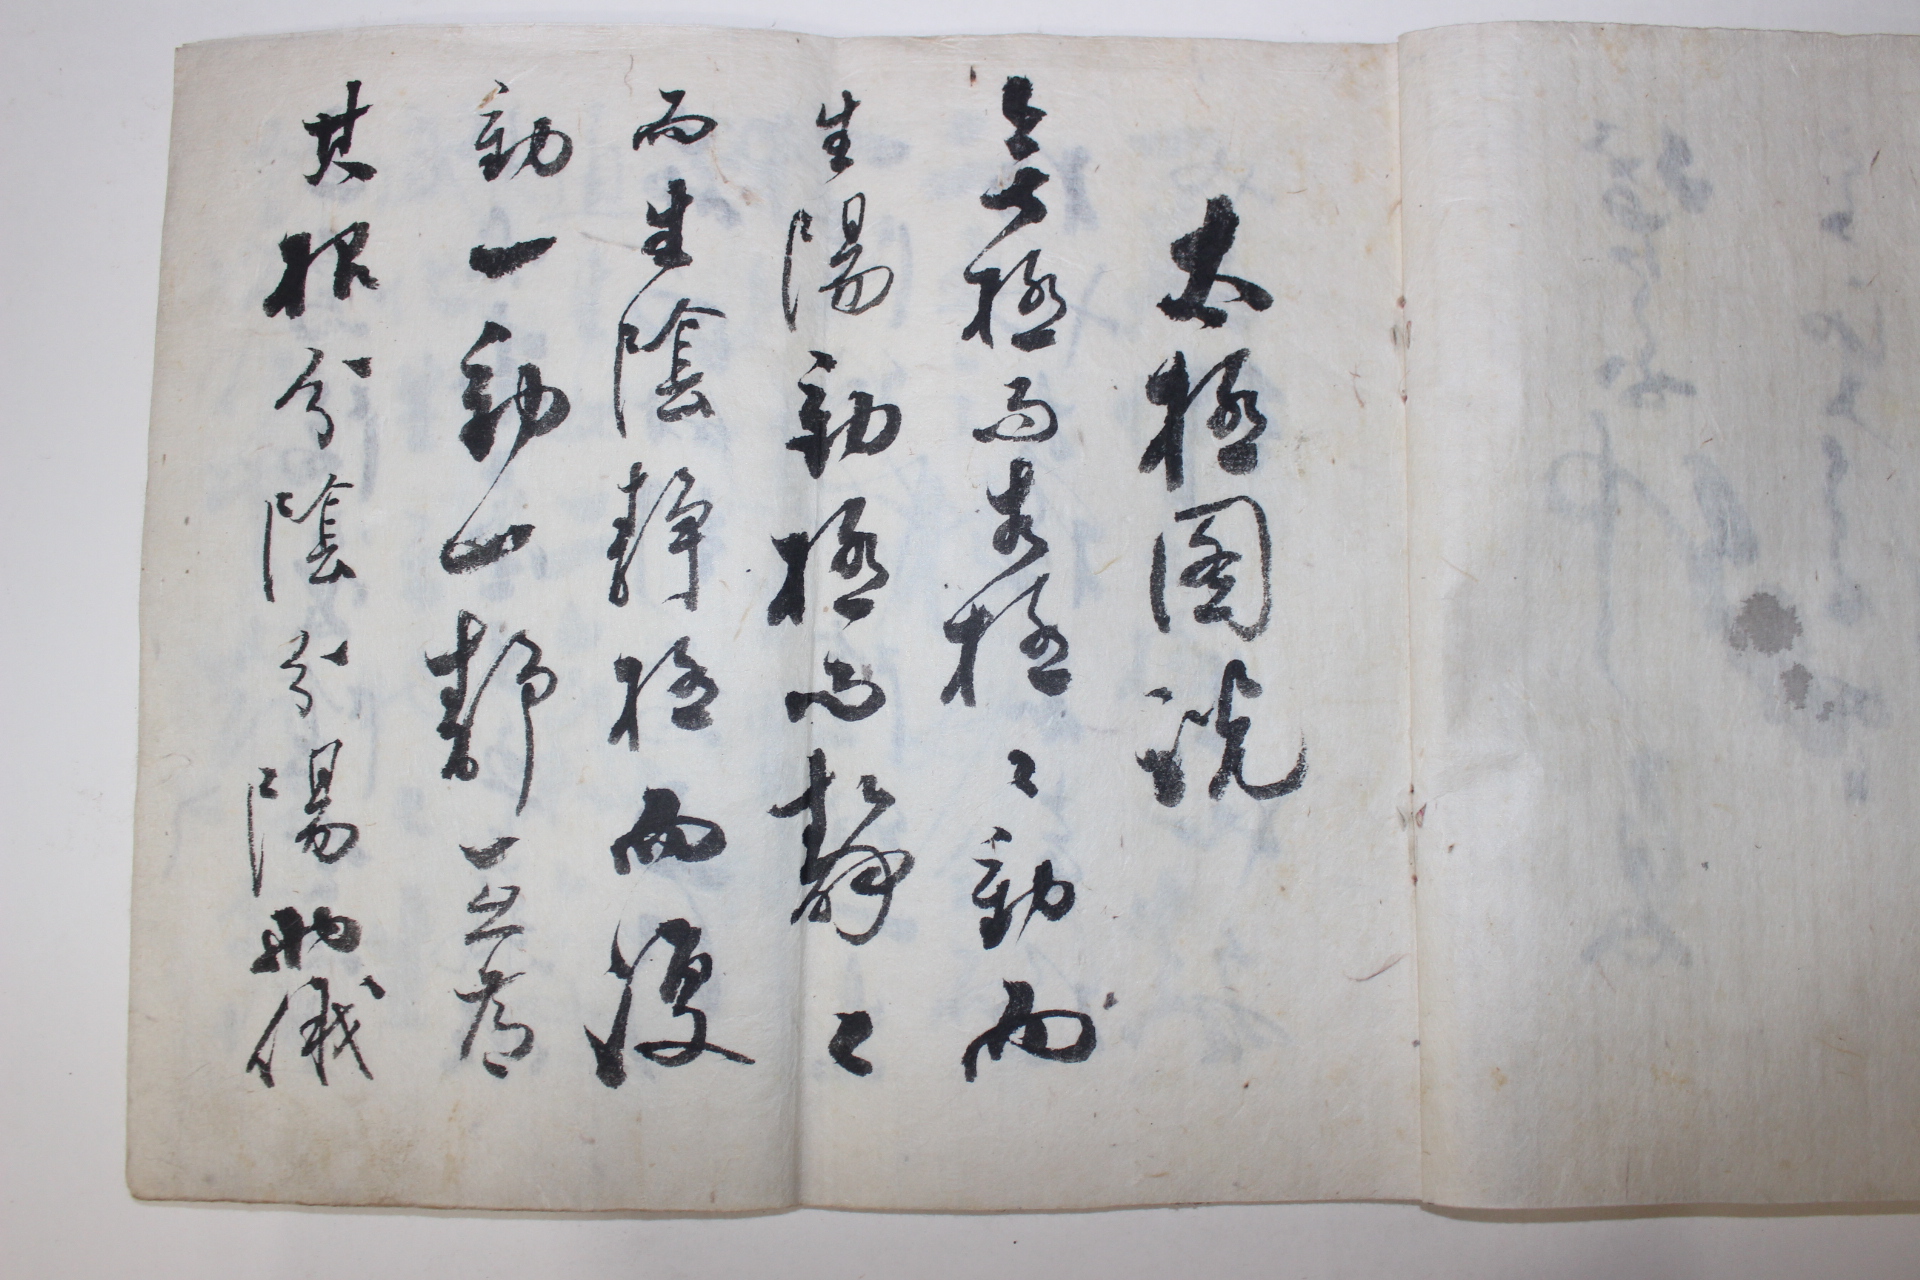 太極圖說
無極而太極〻〻動而
生陽動極而靜〻
而生陰靜極而復
動一動一靜互爲
其根分陰分陽兩儀